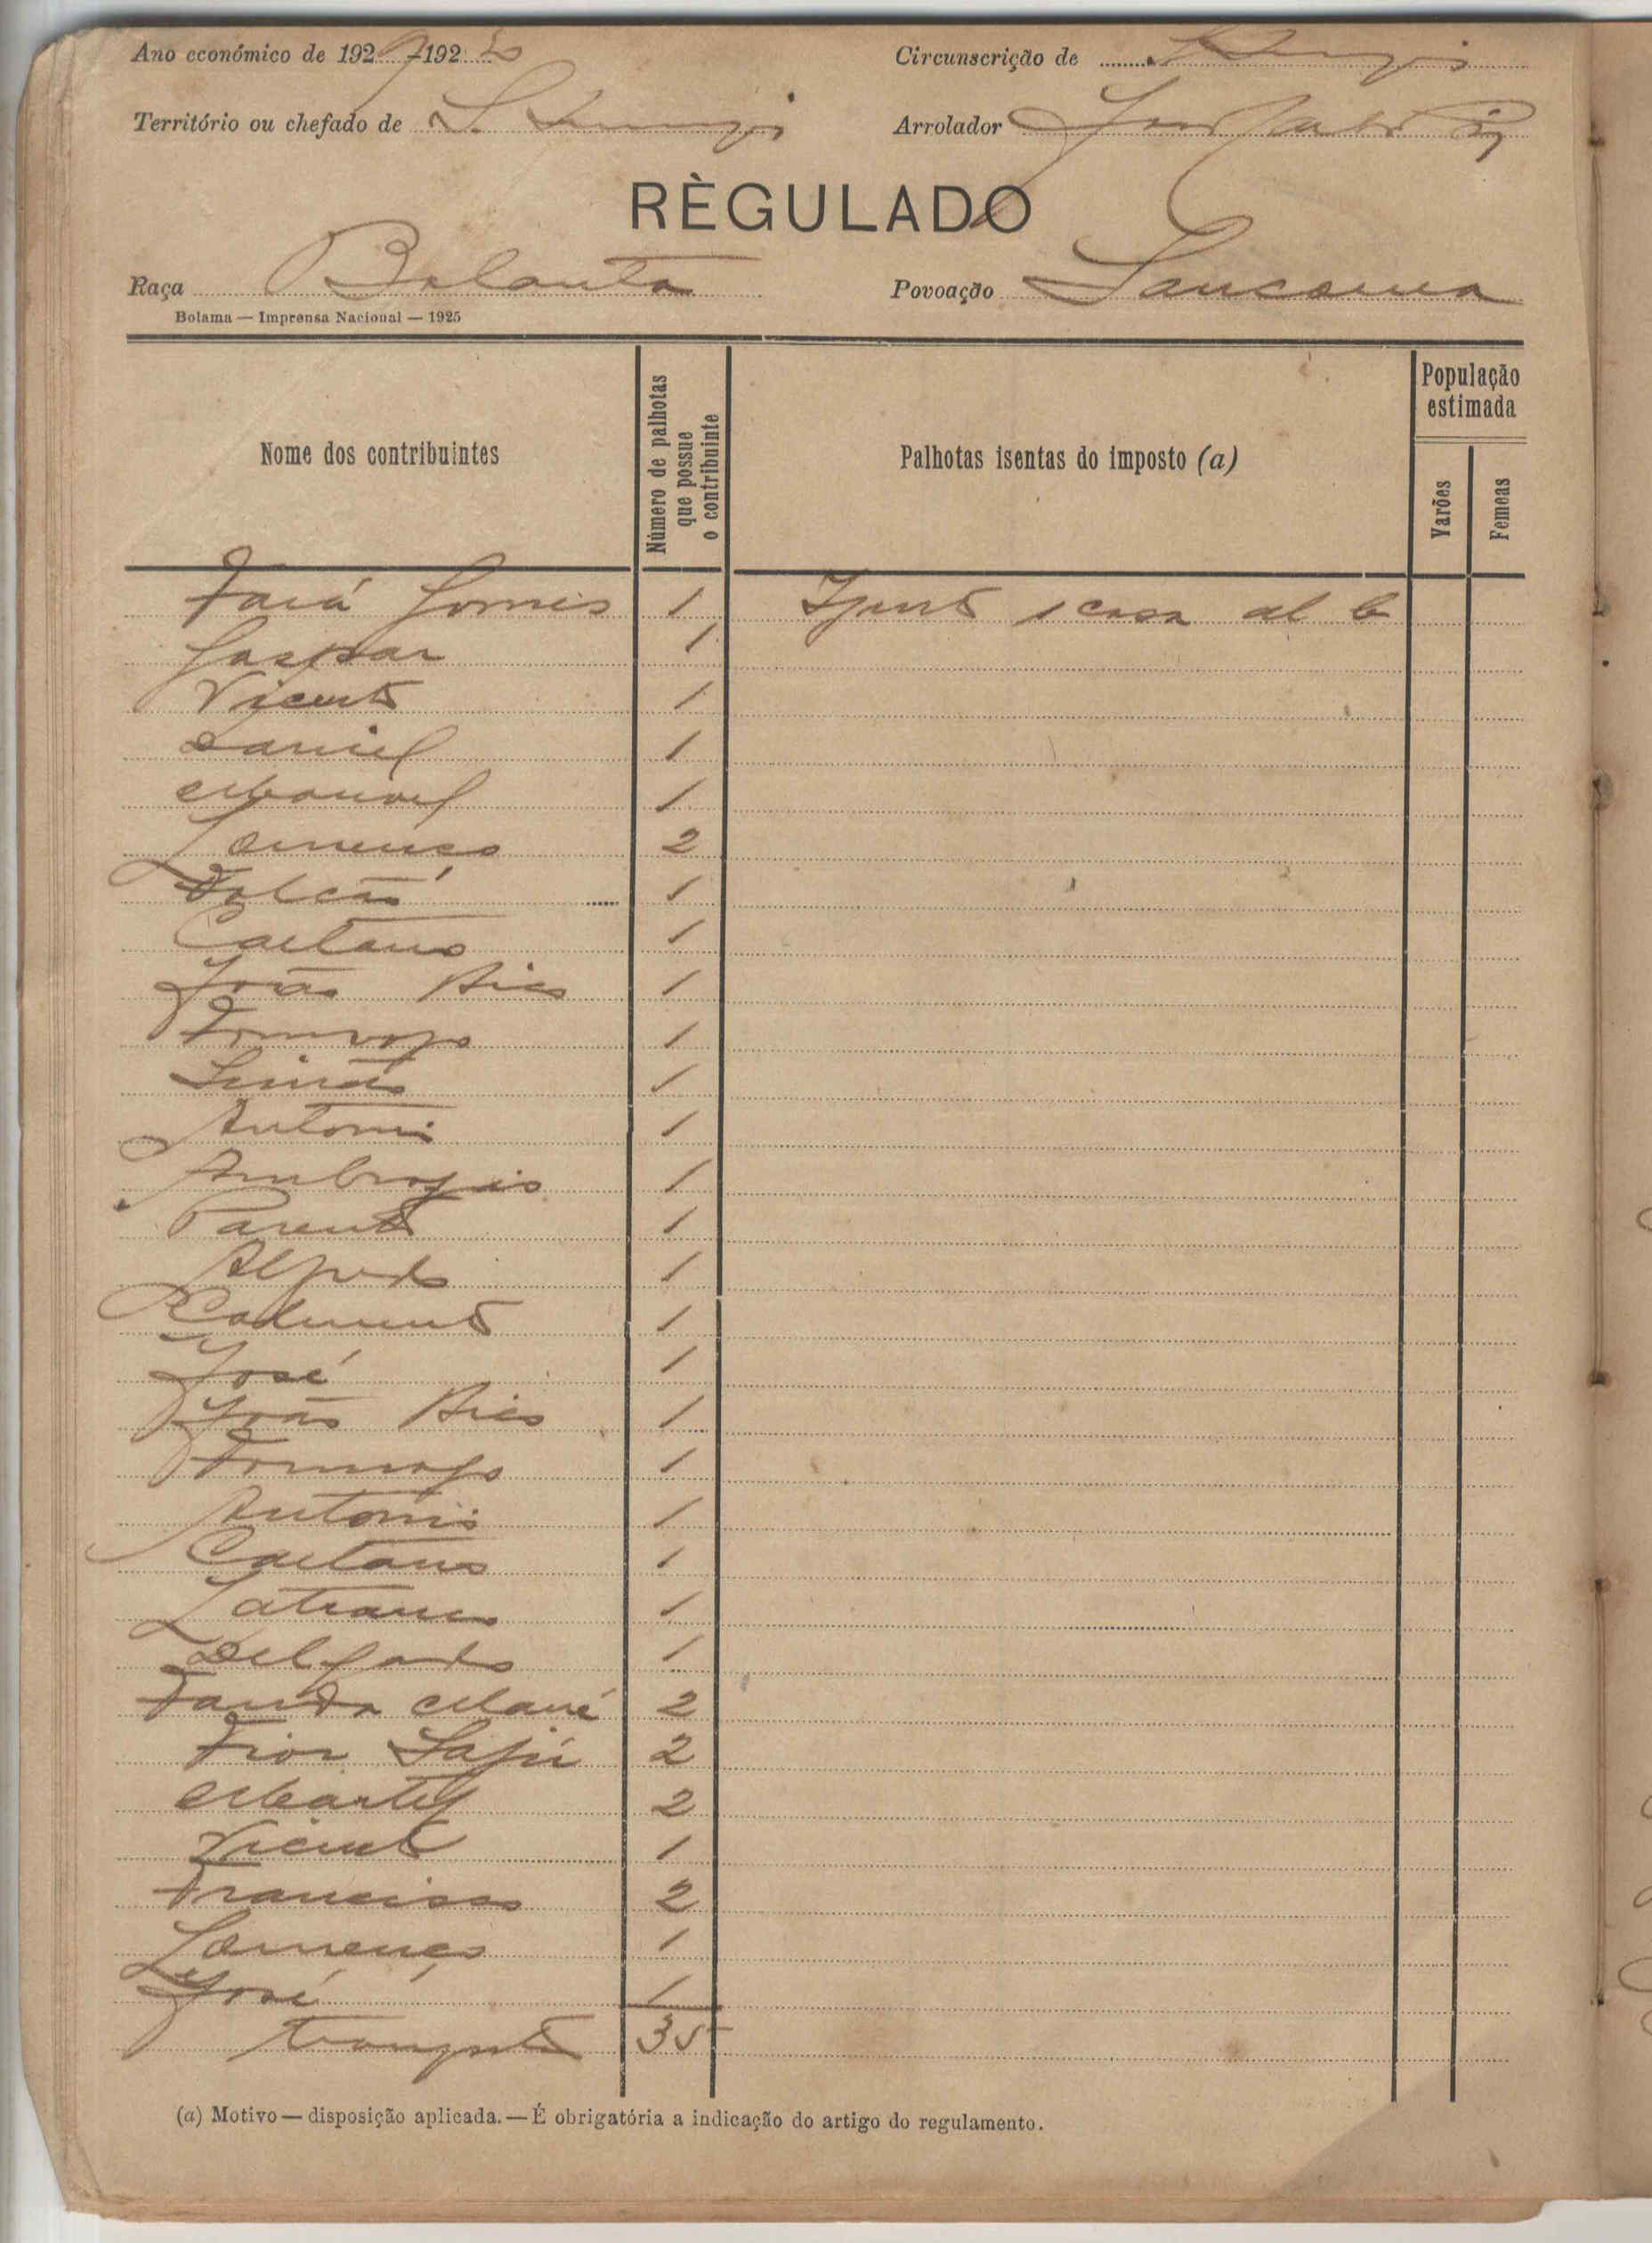 Ano económico de 192 -192
Circunscrição de
Território ou chefado de S.
Arrolador
RÈGULADO
Raça Balanta
Povoação
Bolama — Imprensa Nacional — 1925
Nome dos contribuintes
Número de palhotas que possue o contribuinte
Palhotas isentas do imposto (a)
População estimada
Varões
Femeas
Gomes 1 1 casa al b
Gaspar 1
Vicente 1
Daniel 1
Manoel 1
Lourenço 2
1
Caetano 1
João 1
Domingos 1
Simão 1
Antonio 1
Ambrozio 1
Parente 1
Alfredo 1
1
José 1
João 1
Domingos 1
Antonio 1
Caetano 1
1
Delgado 1
Mané 2
2
2
Vicente 1
Francisco 2
Lourenço 1
José 1
Transporte 35
(a) Motivo — disposição aplicada. — É obrigatória a indicação do artigo do regulamento.